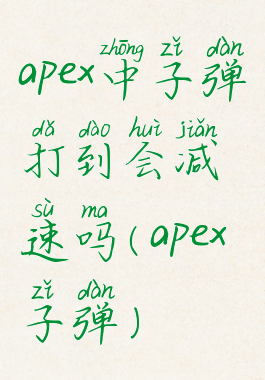 zhōng zǐ dàn
apex中子弹
dǎ dào huì jiǎn
打到会减
sù ma
速吗(apex
zǐ dàn
子弹)